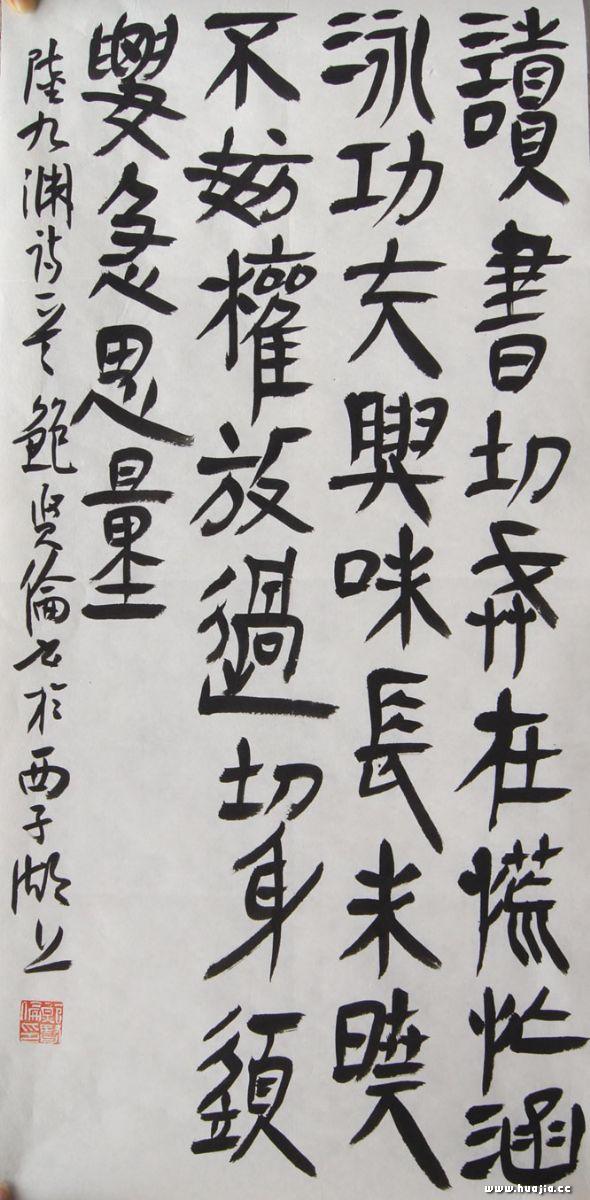 讀書切戒在慌忙涵
泳功夫興味長未曉
不妨權放過切身須
要急思量
陸九渊诗一首 鮑贤倫书於西子湖上
www.huajia.cc